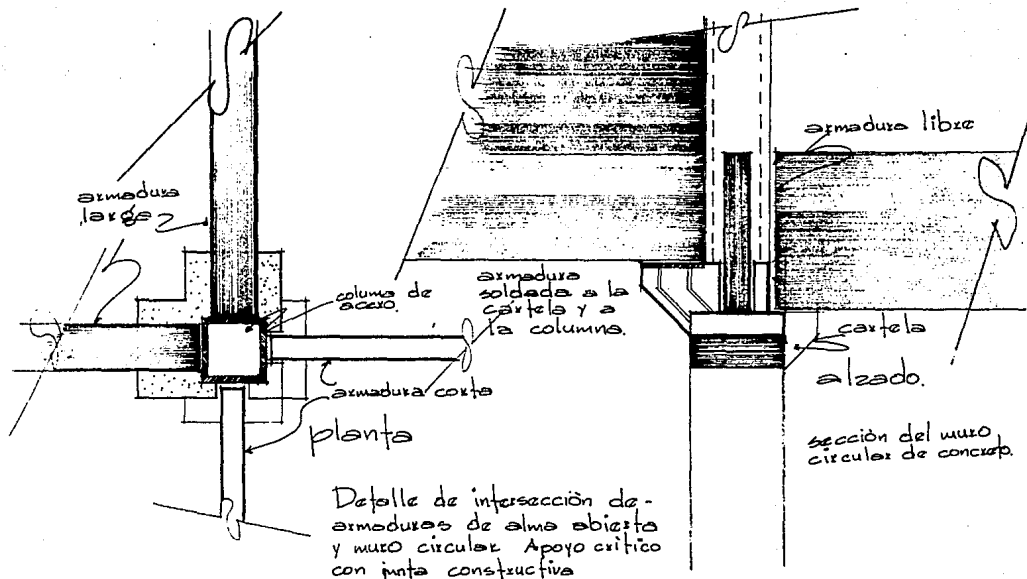 armadura
larga
columa de
acero.
armadura
soldada a la
cartela y a
la columna.
armadura corta
planta
armadura libre
cartela
alzado.
sección del muro
circular de concreto.
Detalle de intersección de-
armaduras de alma abierta
y muro circular. Apoyo crítico
con junta constructiva